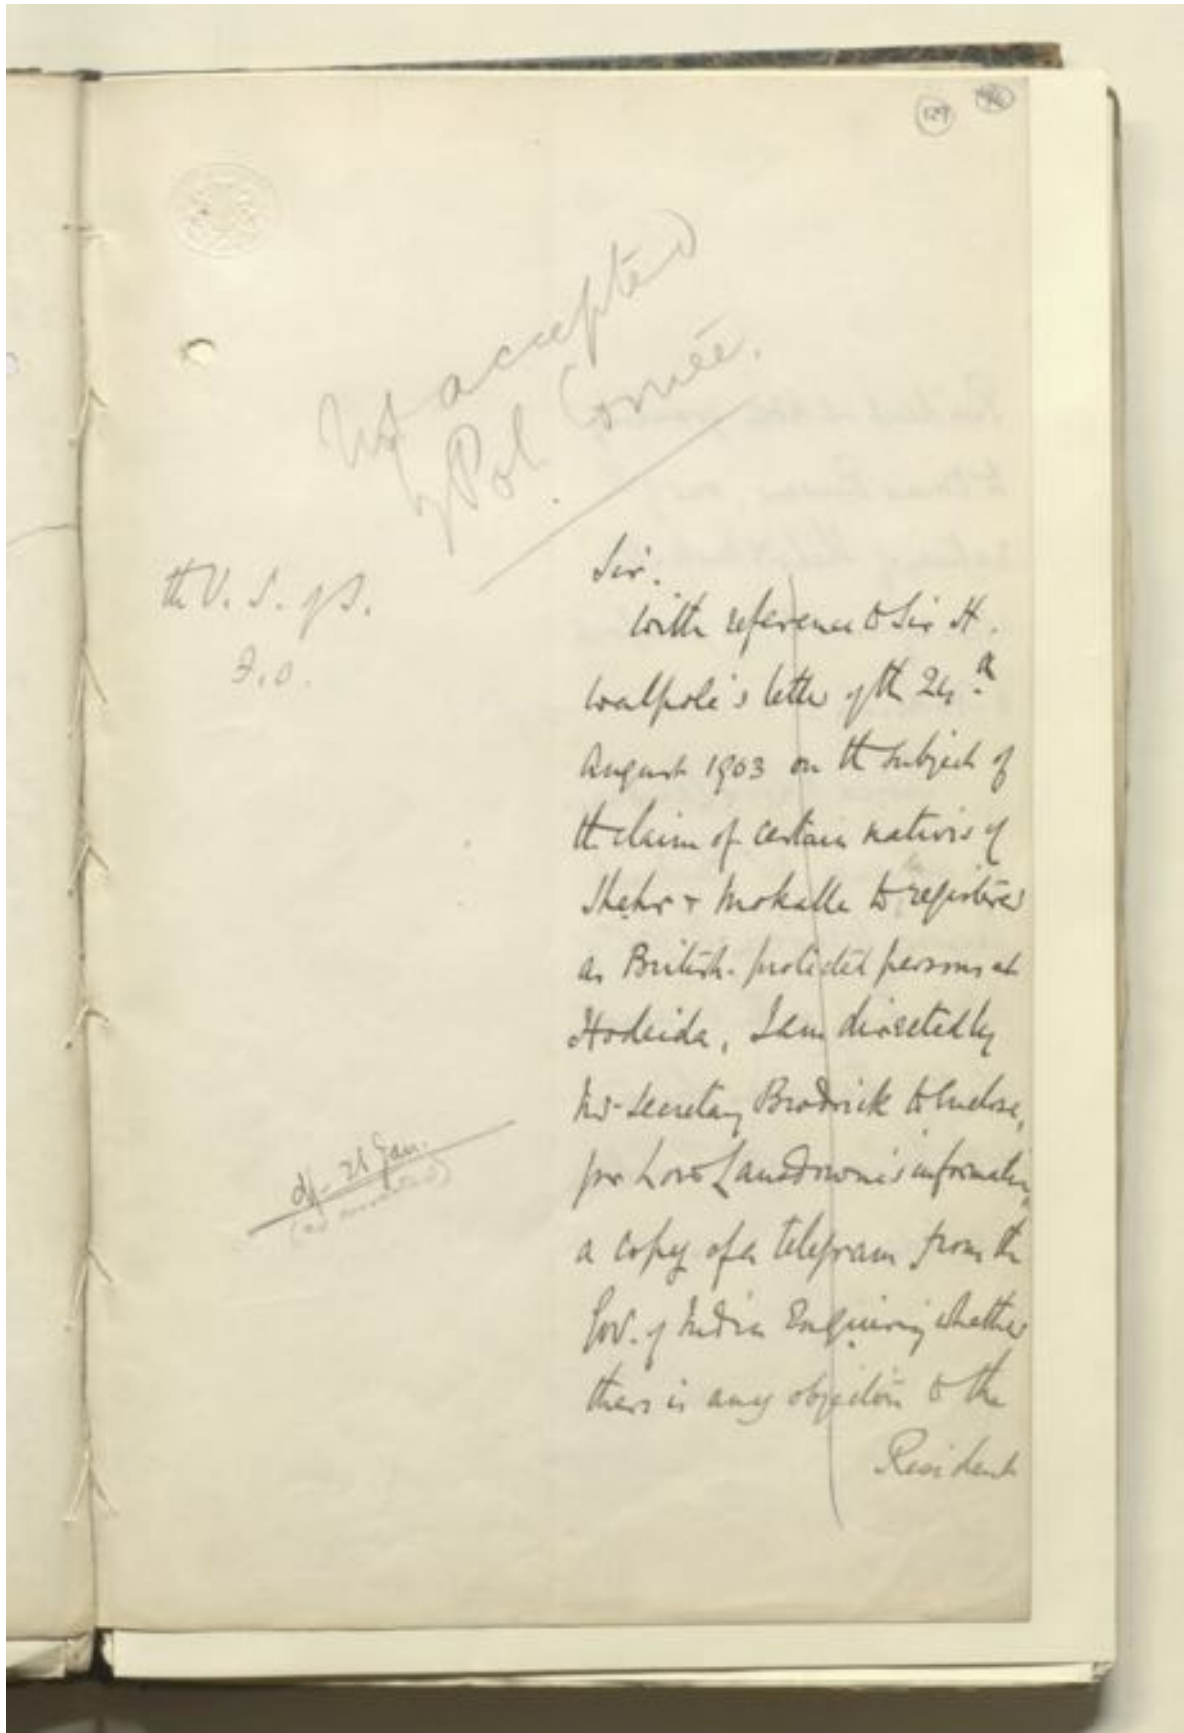 129
Not accepted
by Pol. Comtee.
th U. S. of S.
F.O.
Sir.
With reference to Sir H.
Walpole's letter of th 24th
August 1903 on th subject of
th claim of certain natives of
Shehr & Mokalla to registered
as British-protected persons at
Hodeida, I am directed by
Mr Secretary Brodrick to enclose,
for Lord Lansdowne's information,
a copy of a telegram from th
Gov. of India enquiring whether
there is any objection to the
Resident
Jan.